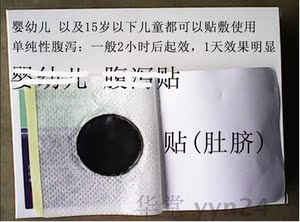 婴幼儿 以及15岁以下儿童都可以贴敷使用
单纯性腹泻：一般2小时后起效，1天效果明显
婴幼儿 腹泻贴
贴(肚脐)
华堂 yyn24